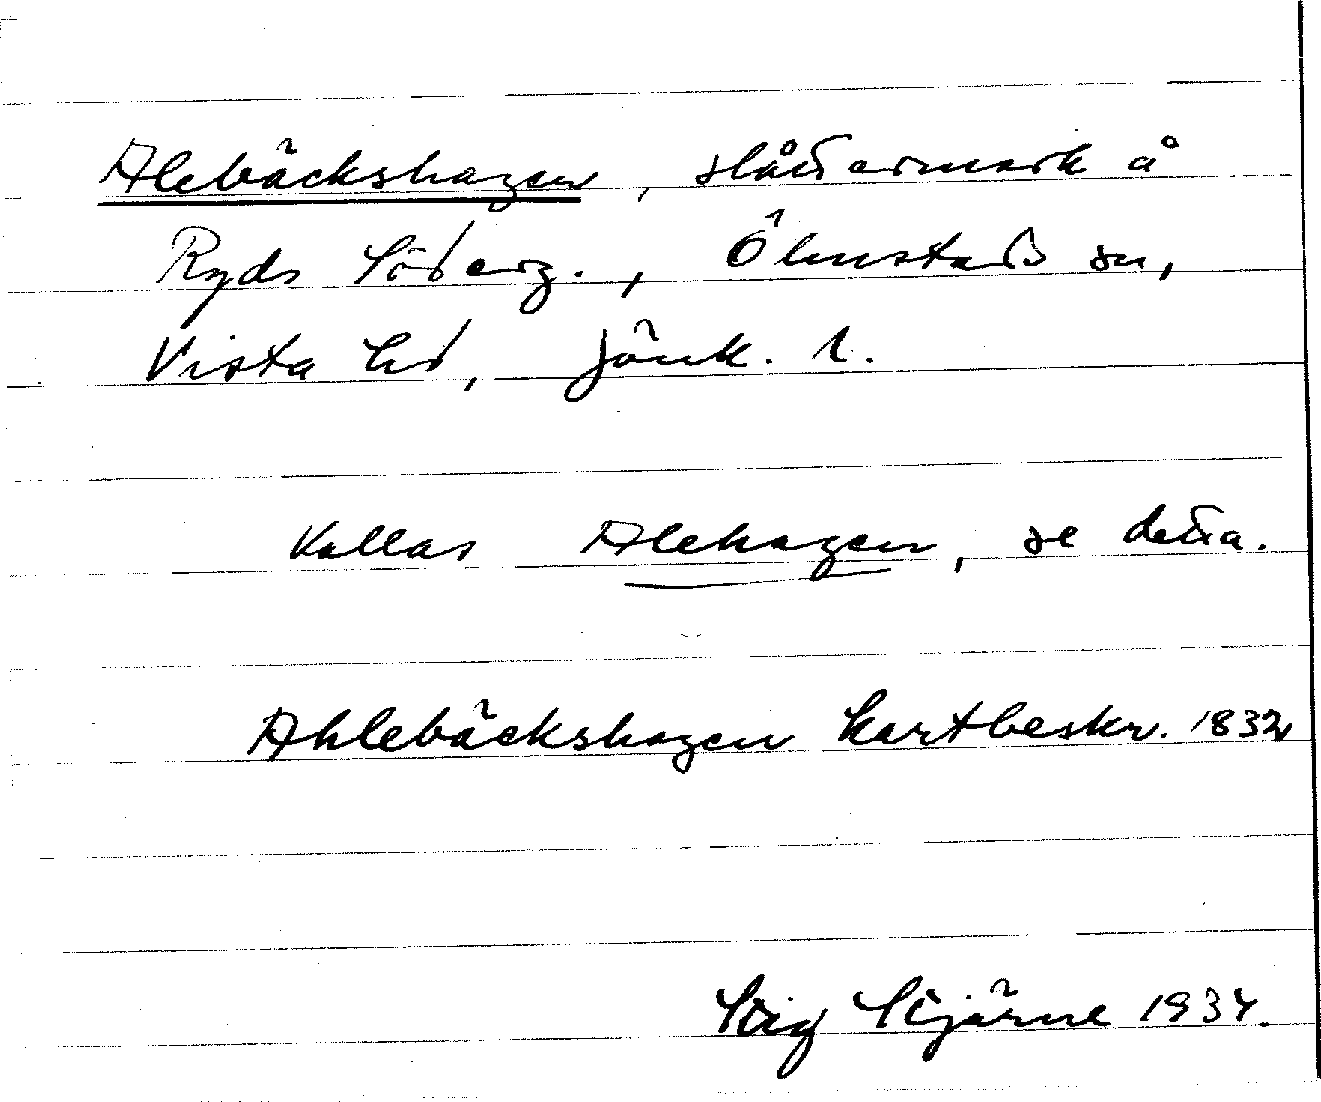 Alebäckshagen, slåttermark å
Ryds Söderg., Ölmstads sn,
Vista hd, Jönk. l.
Kallas Alehagen, se detta.
Ahlebäckshagen kartbeskr. 1832
Stig Stjärne 1934.